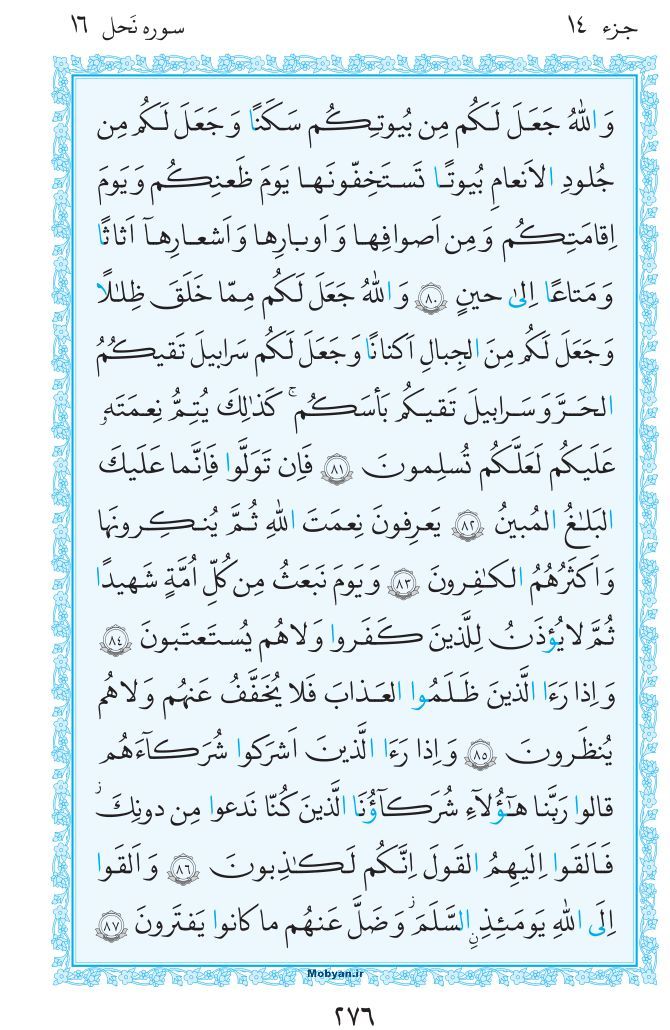 جزء ١٤
سوره نَحل ١٦
وَاللّٰهُ جَعَلَ لَكُم مِن بُيوتِكُم سَكَنًا وَجَعَلَ لَكُم مِن
جُلودِ الاَنعامِ بُيوتًا تَستَخِفّونَها يَومَ ظَعنِكُم وَيَومَ
اِقامَتِكُم وَمِن اَصوافِها وَاَوبارِها وَاَشعارِهآ اَثاثًا
وَمَتاعًا اِلىٰ حينٍ ﴿٨٠﴾ وَاللّٰهُ جَعَلَ لَكُم مِمّا خَلَقَ ظِلٰلًا
وَجَعَلَ لَكُم مِنَ الجِبالِ اَكنانًا وَجَعَلَ لَكُم سَرابيلَ تَقيكُمُ
الحَرَّ وَسَرابيلَ تَقيكُم بَأسَكُم ۚ كَذٰلِكَ يُتِمُّ نِعمَتَهٗ
عَلَيكُم لَعَلَّكُم تُسلِمونَ ﴿٨١﴾ فَاِن تَوَلَّوا فَاِنَّما عَلَيكَ
البَلٰغُ المُبينُ ﴿٨٢﴾ يَعرِفونَ نِعمَتَ اللّٰهِ ثُمَّ يُنكِرونَها
وَاَكثَرُهُمُ الكٰفِرونَ ﴿٨٣﴾ وَيَومَ نَبعَثُ مِن كُلِّ اُمَّةٍ شَهيدًا
ثُمَّ لايُؤذَنُ لِلَّذينَ كَفَروا وَلاهُم يُستَعتَبونَ ﴿٨٤﴾
وَاِذا رَءَا الَّذينَ ظَلَمُوا العَذابَ فَلا يُخَفَّفُ عَنهُم وَلاهُم
يُنظَرونَ ﴿٨٥﴾ وَاِذا رَءَا الَّذينَ اَشرَكوا شُرَكآءَهُم
قالوا رَبَّنا هٰؤُلآءِ شُرَكآؤُنَا الَّذينَ كُنّا نَدعوا مِن دونِكَ ۖ
فَاَلقَوا اِلَيهِمُ القَولَ اِنَّكُم لَكٰذِبونَ ﴿٨٦﴾ وَاَلقَوا
اِلَى اللّٰهِ يَومَئِذٍ السَّلَمَ ۖ وَضَلَّ عَنهُم ما كانوا يَفتَرونَ ﴿٨٧﴾
Mobyan.ir
٢٧٦